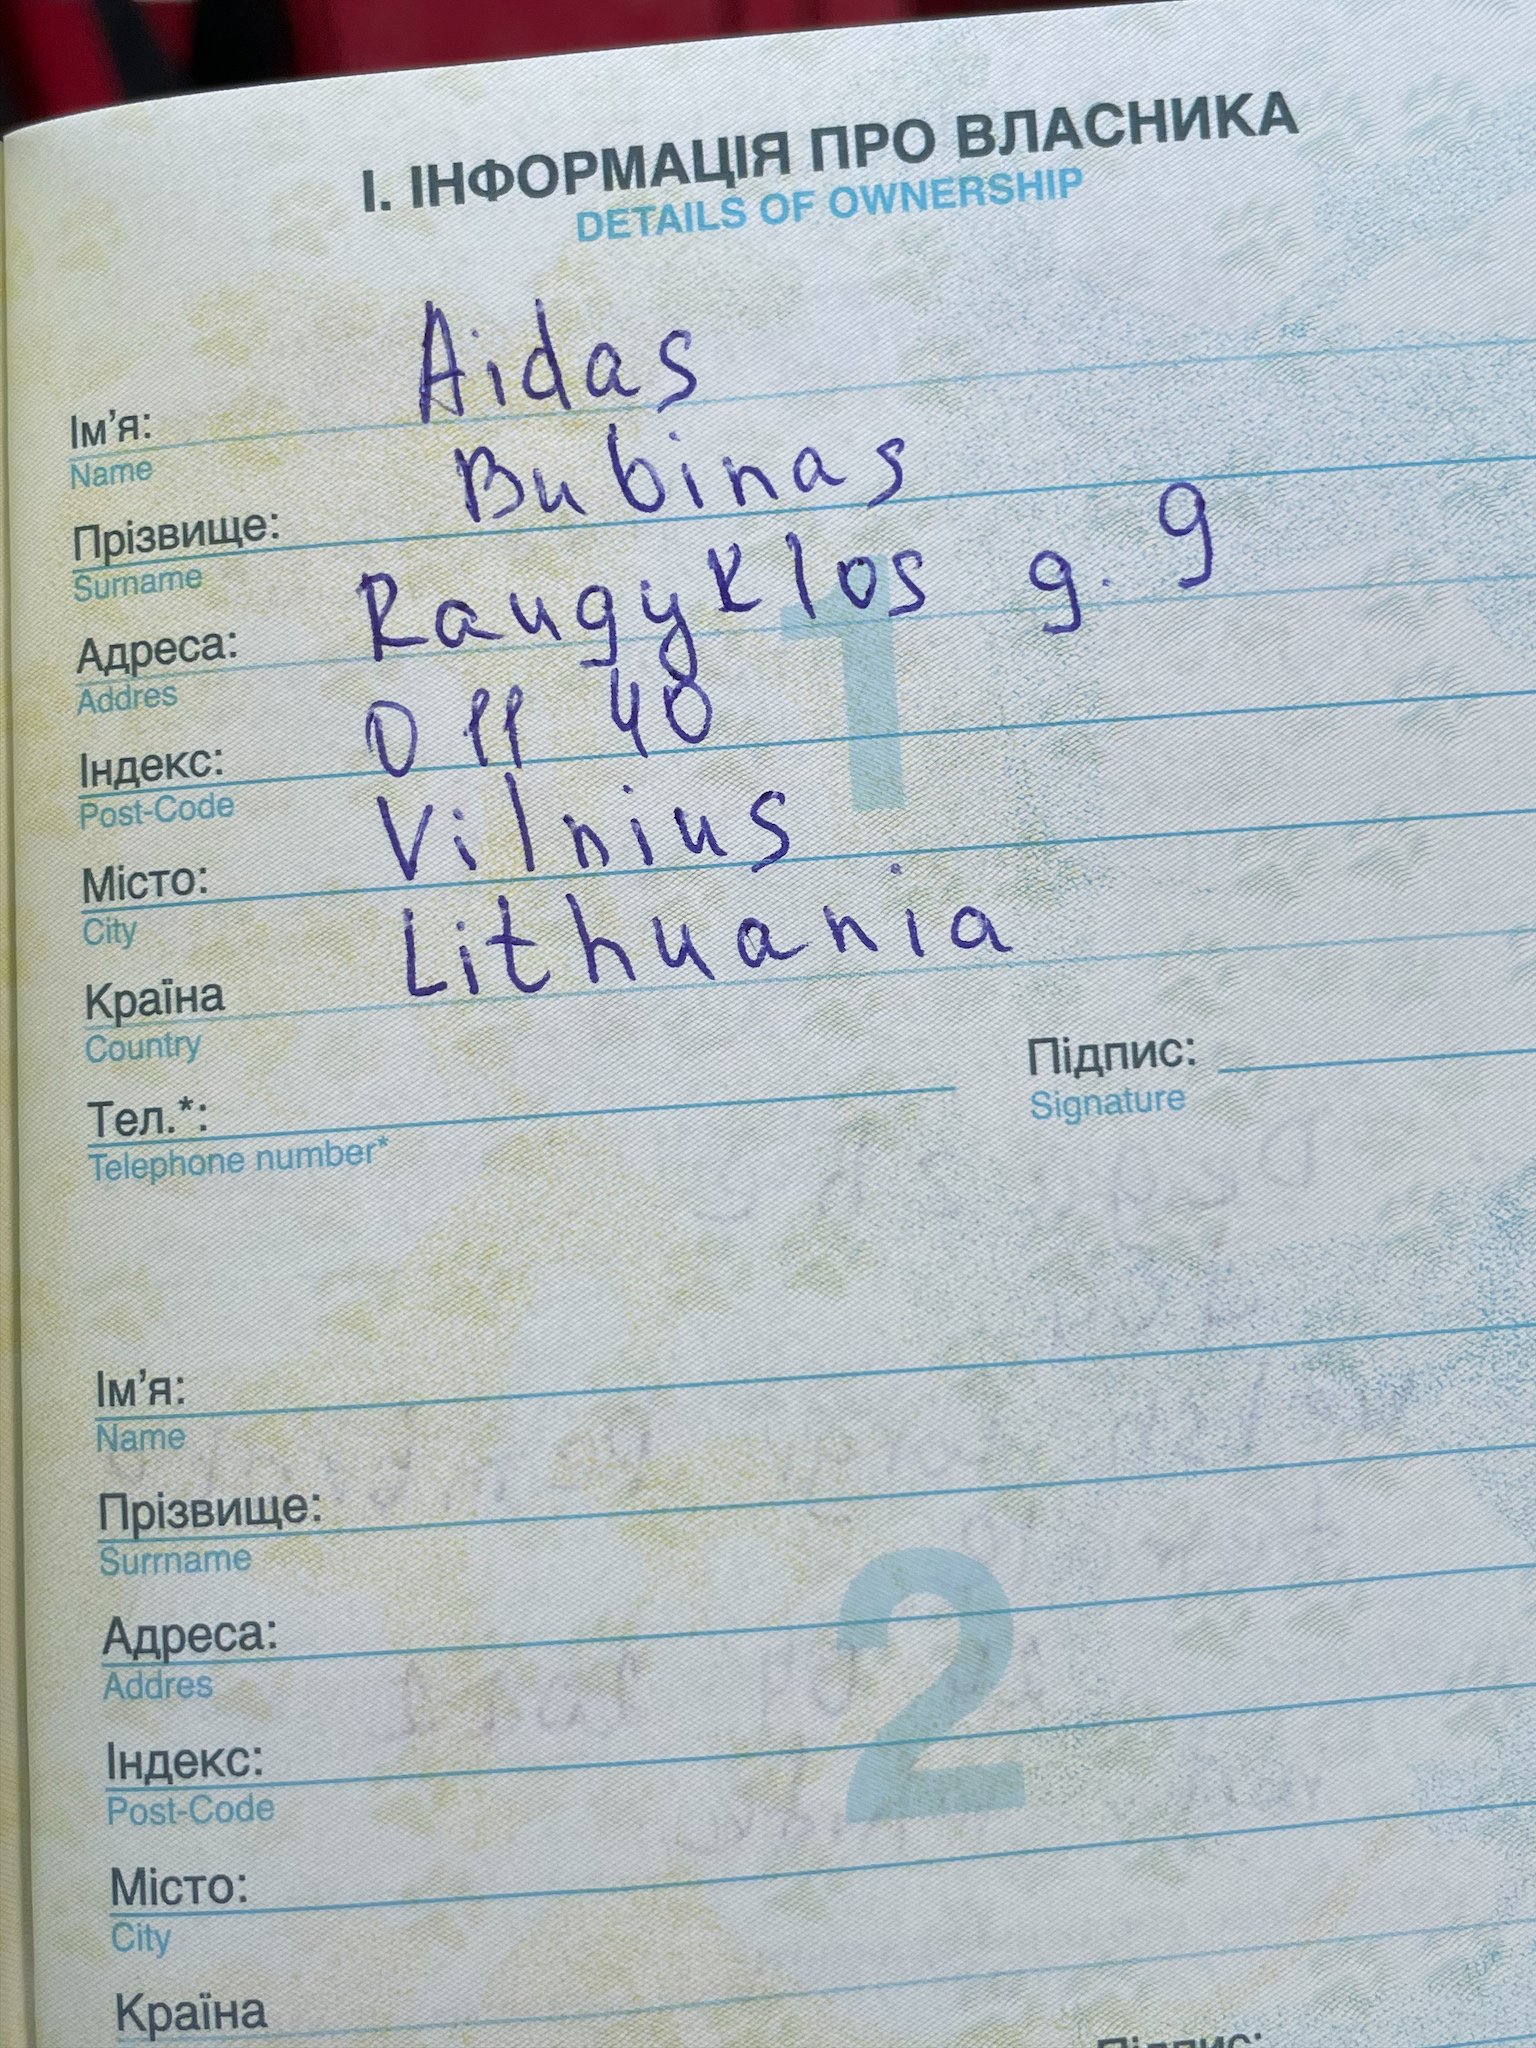 І. ІНФОРМАЦІЯ ПРО ВЛАСНИКА
DETAILS OF OWNERSHIP
Ім'я: Aidas
Name
Прізвище: Bubinas
Surname
Адреса: Raugyklos g. 9
Addres
1
Індекс: 01140
Post-Code
Місто: Vilnius
City
Країна Lithuania
Country
Тел.*: Підпис:
Telephone number* Signature
Ім'я:
Name
Прізвище:
Surrname
Адреса:
Addres
2
Індекс:
Post-Code
Місто:
City
Країна
Підпис: